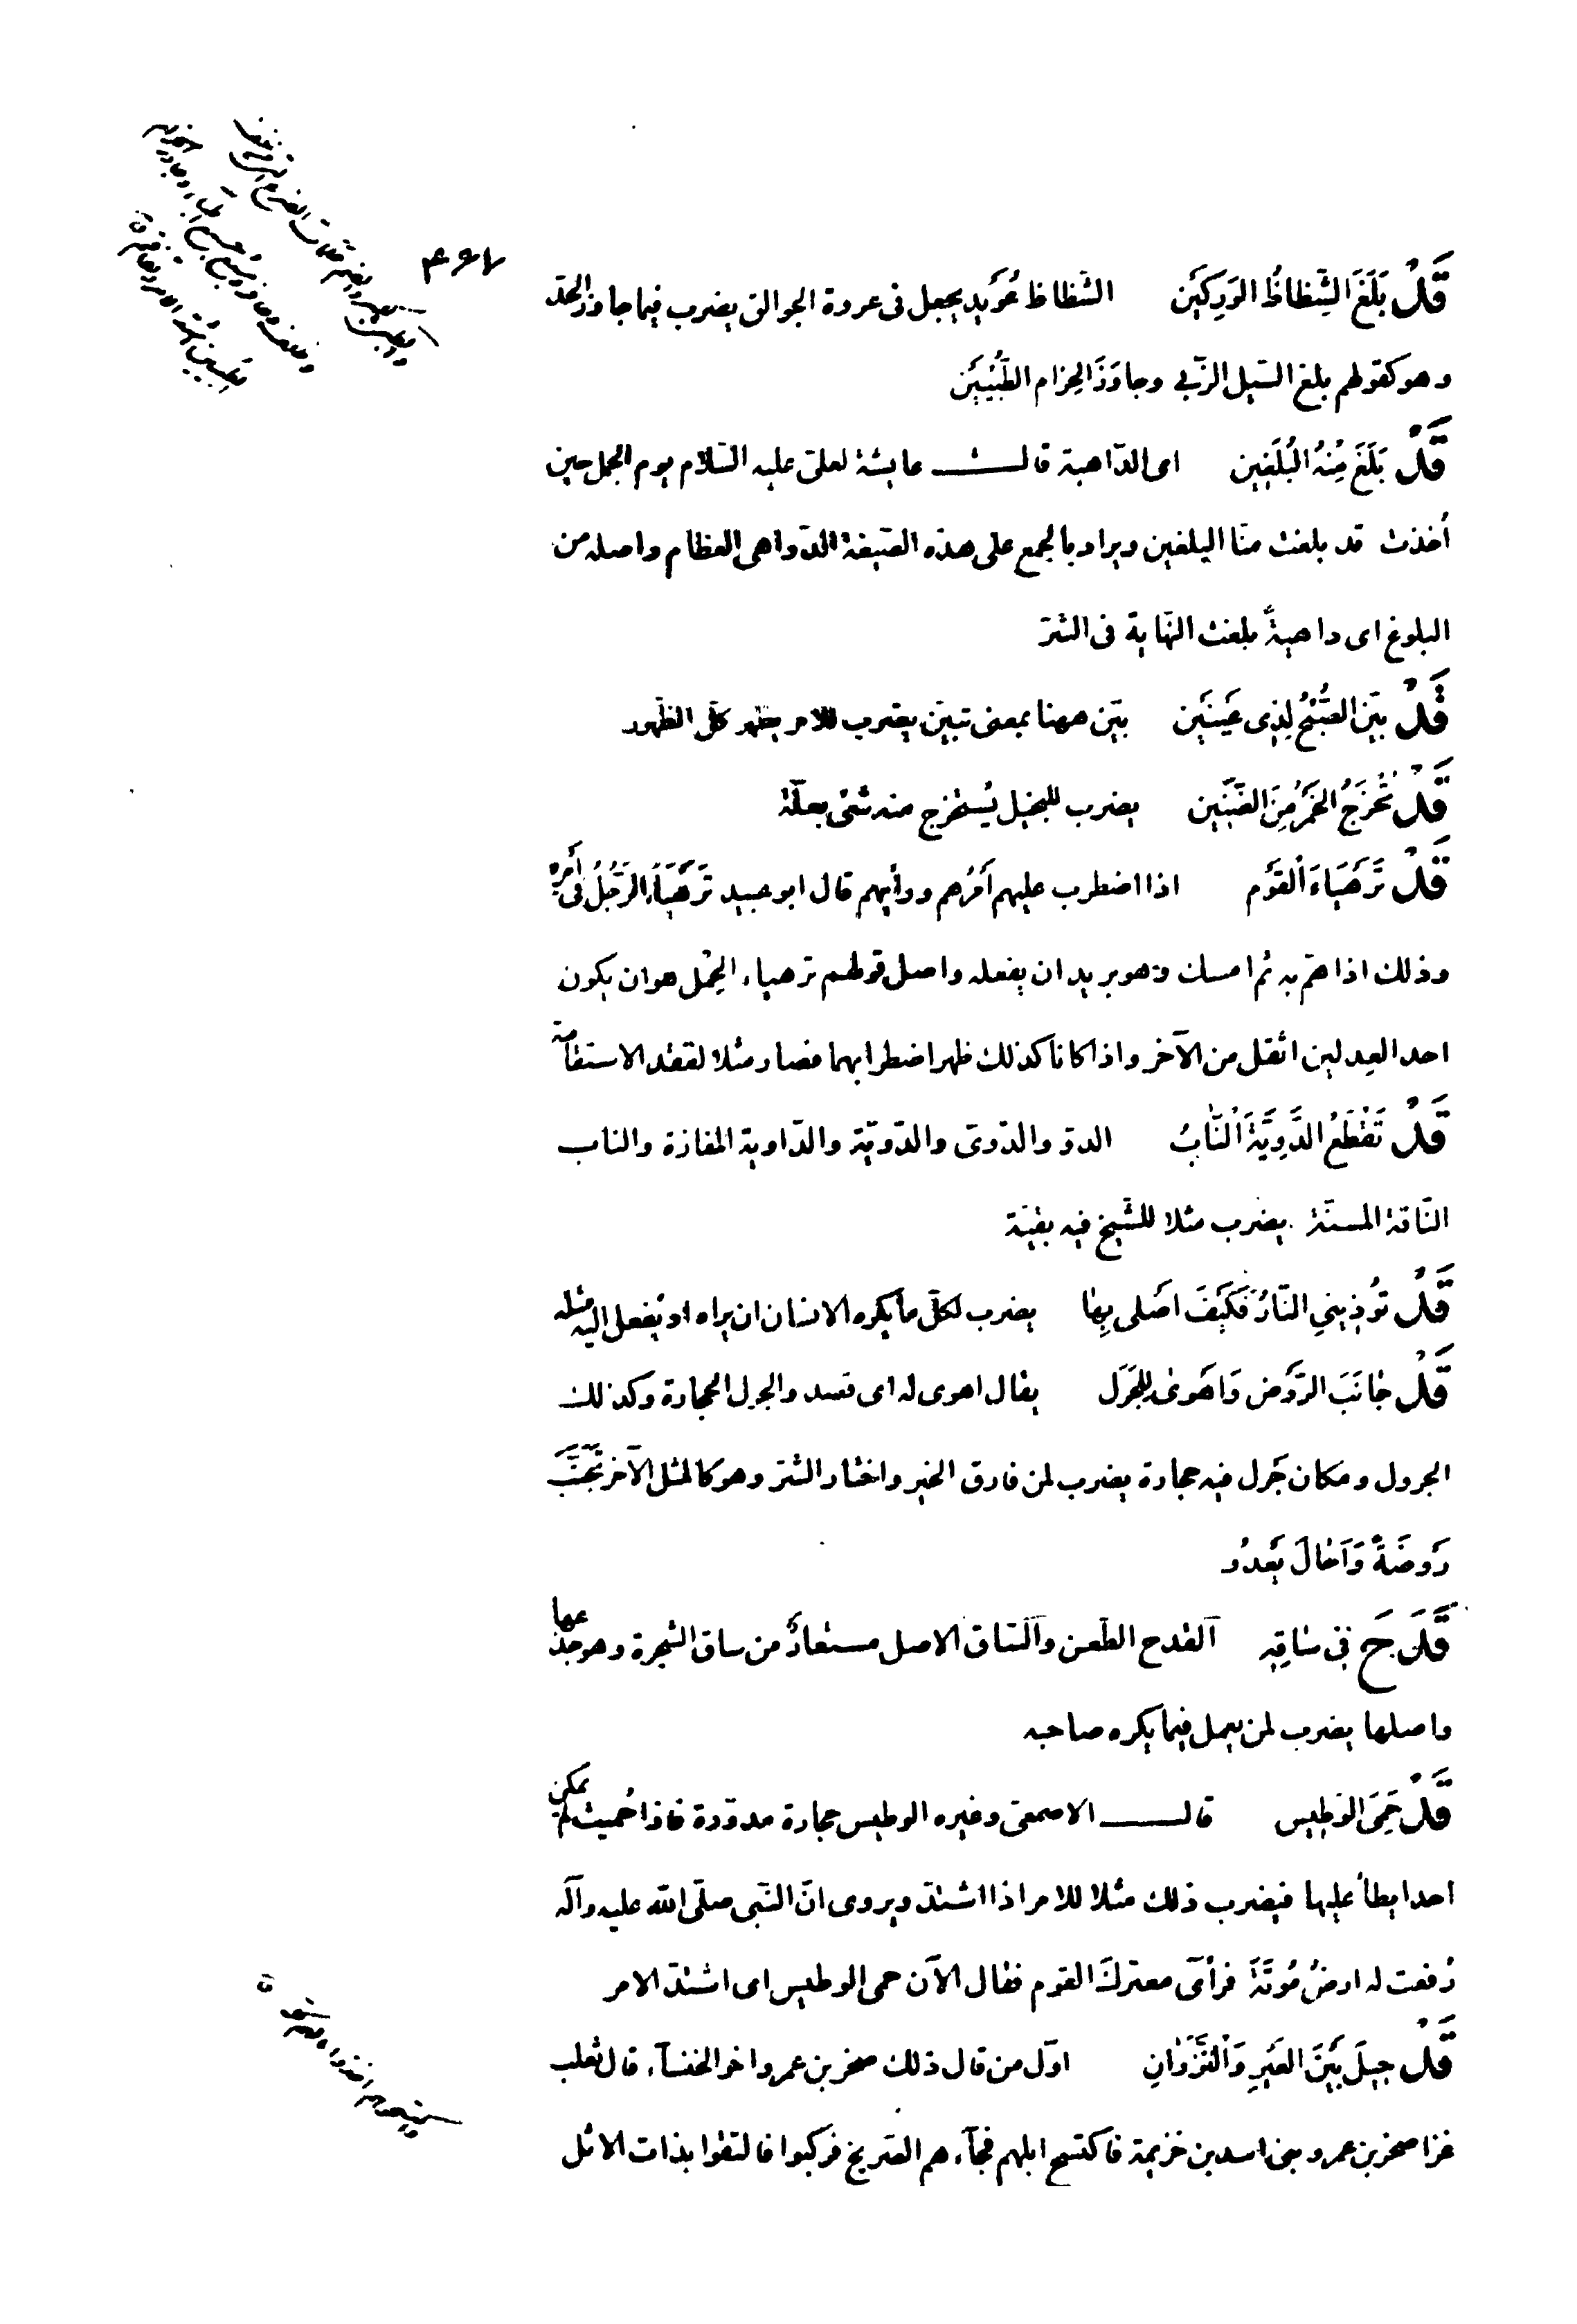 ۴۶۷
قَدْ بَلَغَ الشِّظَاظُ الوَرِكَيْنِ الشظاظ عُوَيد يجعل فى عروة الجوالق يضرب فيما جاوز الحدّ
وهو كقولهم بلغ السّيل الزّبى وجاوَزَ الحِزام الطُّبْيَيْن
قَدْ بَلَغَ مِنْهُ البُلَغِين اى الدّاهية قالــت عايشة لعلىّ عليه السّلام يوم الجمل حين
أخذت قد بلغت منّا البلغين ويراد بالجمع على هذه الصّيغة الدّواهى العظام واصله من
البلوغ اى داهيةٌ بلغت النّهاية فى الشّرّ
قَدْ بَيَّنَ الصُّبْحُ لِذِى عَيْنَيْن بيّن ههنا بمعنى تبيّن يضرب للامر يظهر كلّ الظّهور
قَدْ تُخْرَجُ الخَمْرُ مِنَ الضَّنِّين يضرب للبخيل يُستخرج منه شئ بعلّة
قَدْ تَرَهْيَاءَ القَوْم اذا اضطرب عليهم أمْرُهم ورأيهم قال ابو عبيد تَرَهْيَأَ الرَّجُلُ فى أمره
وذلك اذا همّ به ثم امسك وهو يريد ان يفعله واصل قولهم ترهياء الحِمْل هو ان يكون
احد العِدلين اثقل من الآخر واذا كانا كذلك ظهر اضطرابهما فصار مثلا لفقد الاستقامة
قَدْ تَقْطَعُ الدَّوِيَّةَ النَّابُ الدوّ والدّوىّ والدّويّة والدّاوية المفازة والناب
النّاقة المسنّة يضرب مثلا للشّيخ فيه بقيّة
قَدْ تُؤذِينِى النَّارُ فَكَيْفَ اَصْلى بِهٰا يضرب لكلّ ما يكره الانسان ان يراه او يُفعل اليه مثله
قَدْ جٰانَبَ الرَّوْضَ وَاَهْوىٰ لِلجَرَل يقال اهوى له اى قصد والجرل الحجارة وكذلك
الجرول ومكان جَرل فيه حجارة يضرب لمن فارق الخير واختار الشّرّ وهو كالمثل الآخر تَجَنَّبَ
رَوضَةً وَاَحٰالَ يَعْدُو
قَدَحَ فى سٰاقِهِ القدح الطّعن والسّاق الاصل مستعارٌ من ساق الشّجرة وهو جذعها
واصلها يضرب لمن يعمل فيما يكره صاحبه
قَدْ حَمِىَ الوَطِيس قالـــ الاصمعىّ وغيره الوطيس حجارة مدوّرة فاذا حُميت لم يمكن
احدا يطأ عليها فيضرب ذلك مثلا للامر اذا اشتدّ ويروى انّ النّبى صلّى الله عليه وآله
رُفعت له ارضُ مُوتَةَ فرأى معتركَ القوم فقال الآن حمى الوطيس اى اشتدّ الامر
قَدْ حِيلَ بَيْنَ العَيْرِ وَالنَّزَوٰانِ اوّل من قال ذلك صخر بن عمرو اخو الخنسآء قال ثعلب
غزا صخر بن عمرو بنى اسد بن خزيمة فاكتسح ابلهم فجآءهم الصّريخ فركبوا فالتقوا بذات الاثل